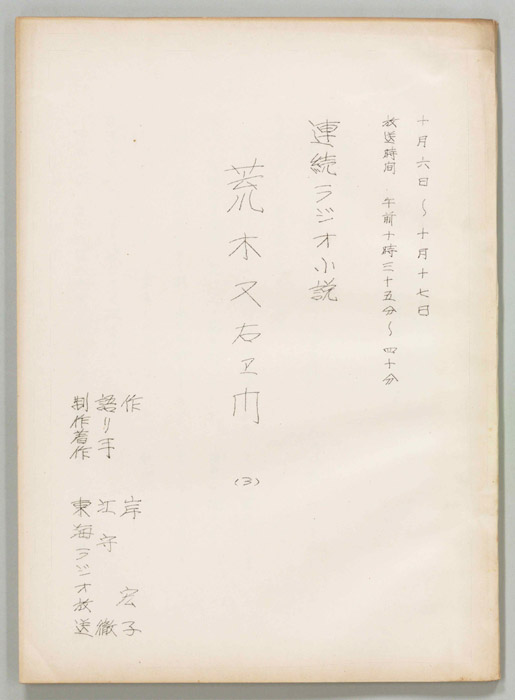 十月六日～十月十七日
放送時間　午前十時三十五分～四十分
連続ラジオ小説
荒木又右ヱ門
(3)
作　岸　宏子
語り手　江守　徹
制作著作　東海ラジオ放送